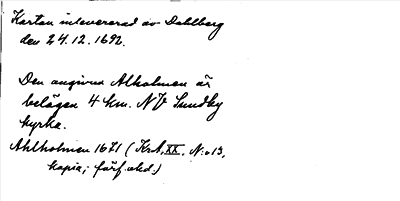 Kartan inlevererad av Dahlberg
den 24.12.1692.
Den angivna Alholmen är
belägen 4 km. NV Sundby
kyrka.
Ahlholmen 1671 (KrA, XX, N:o 13,
kopia; förf. okd.)